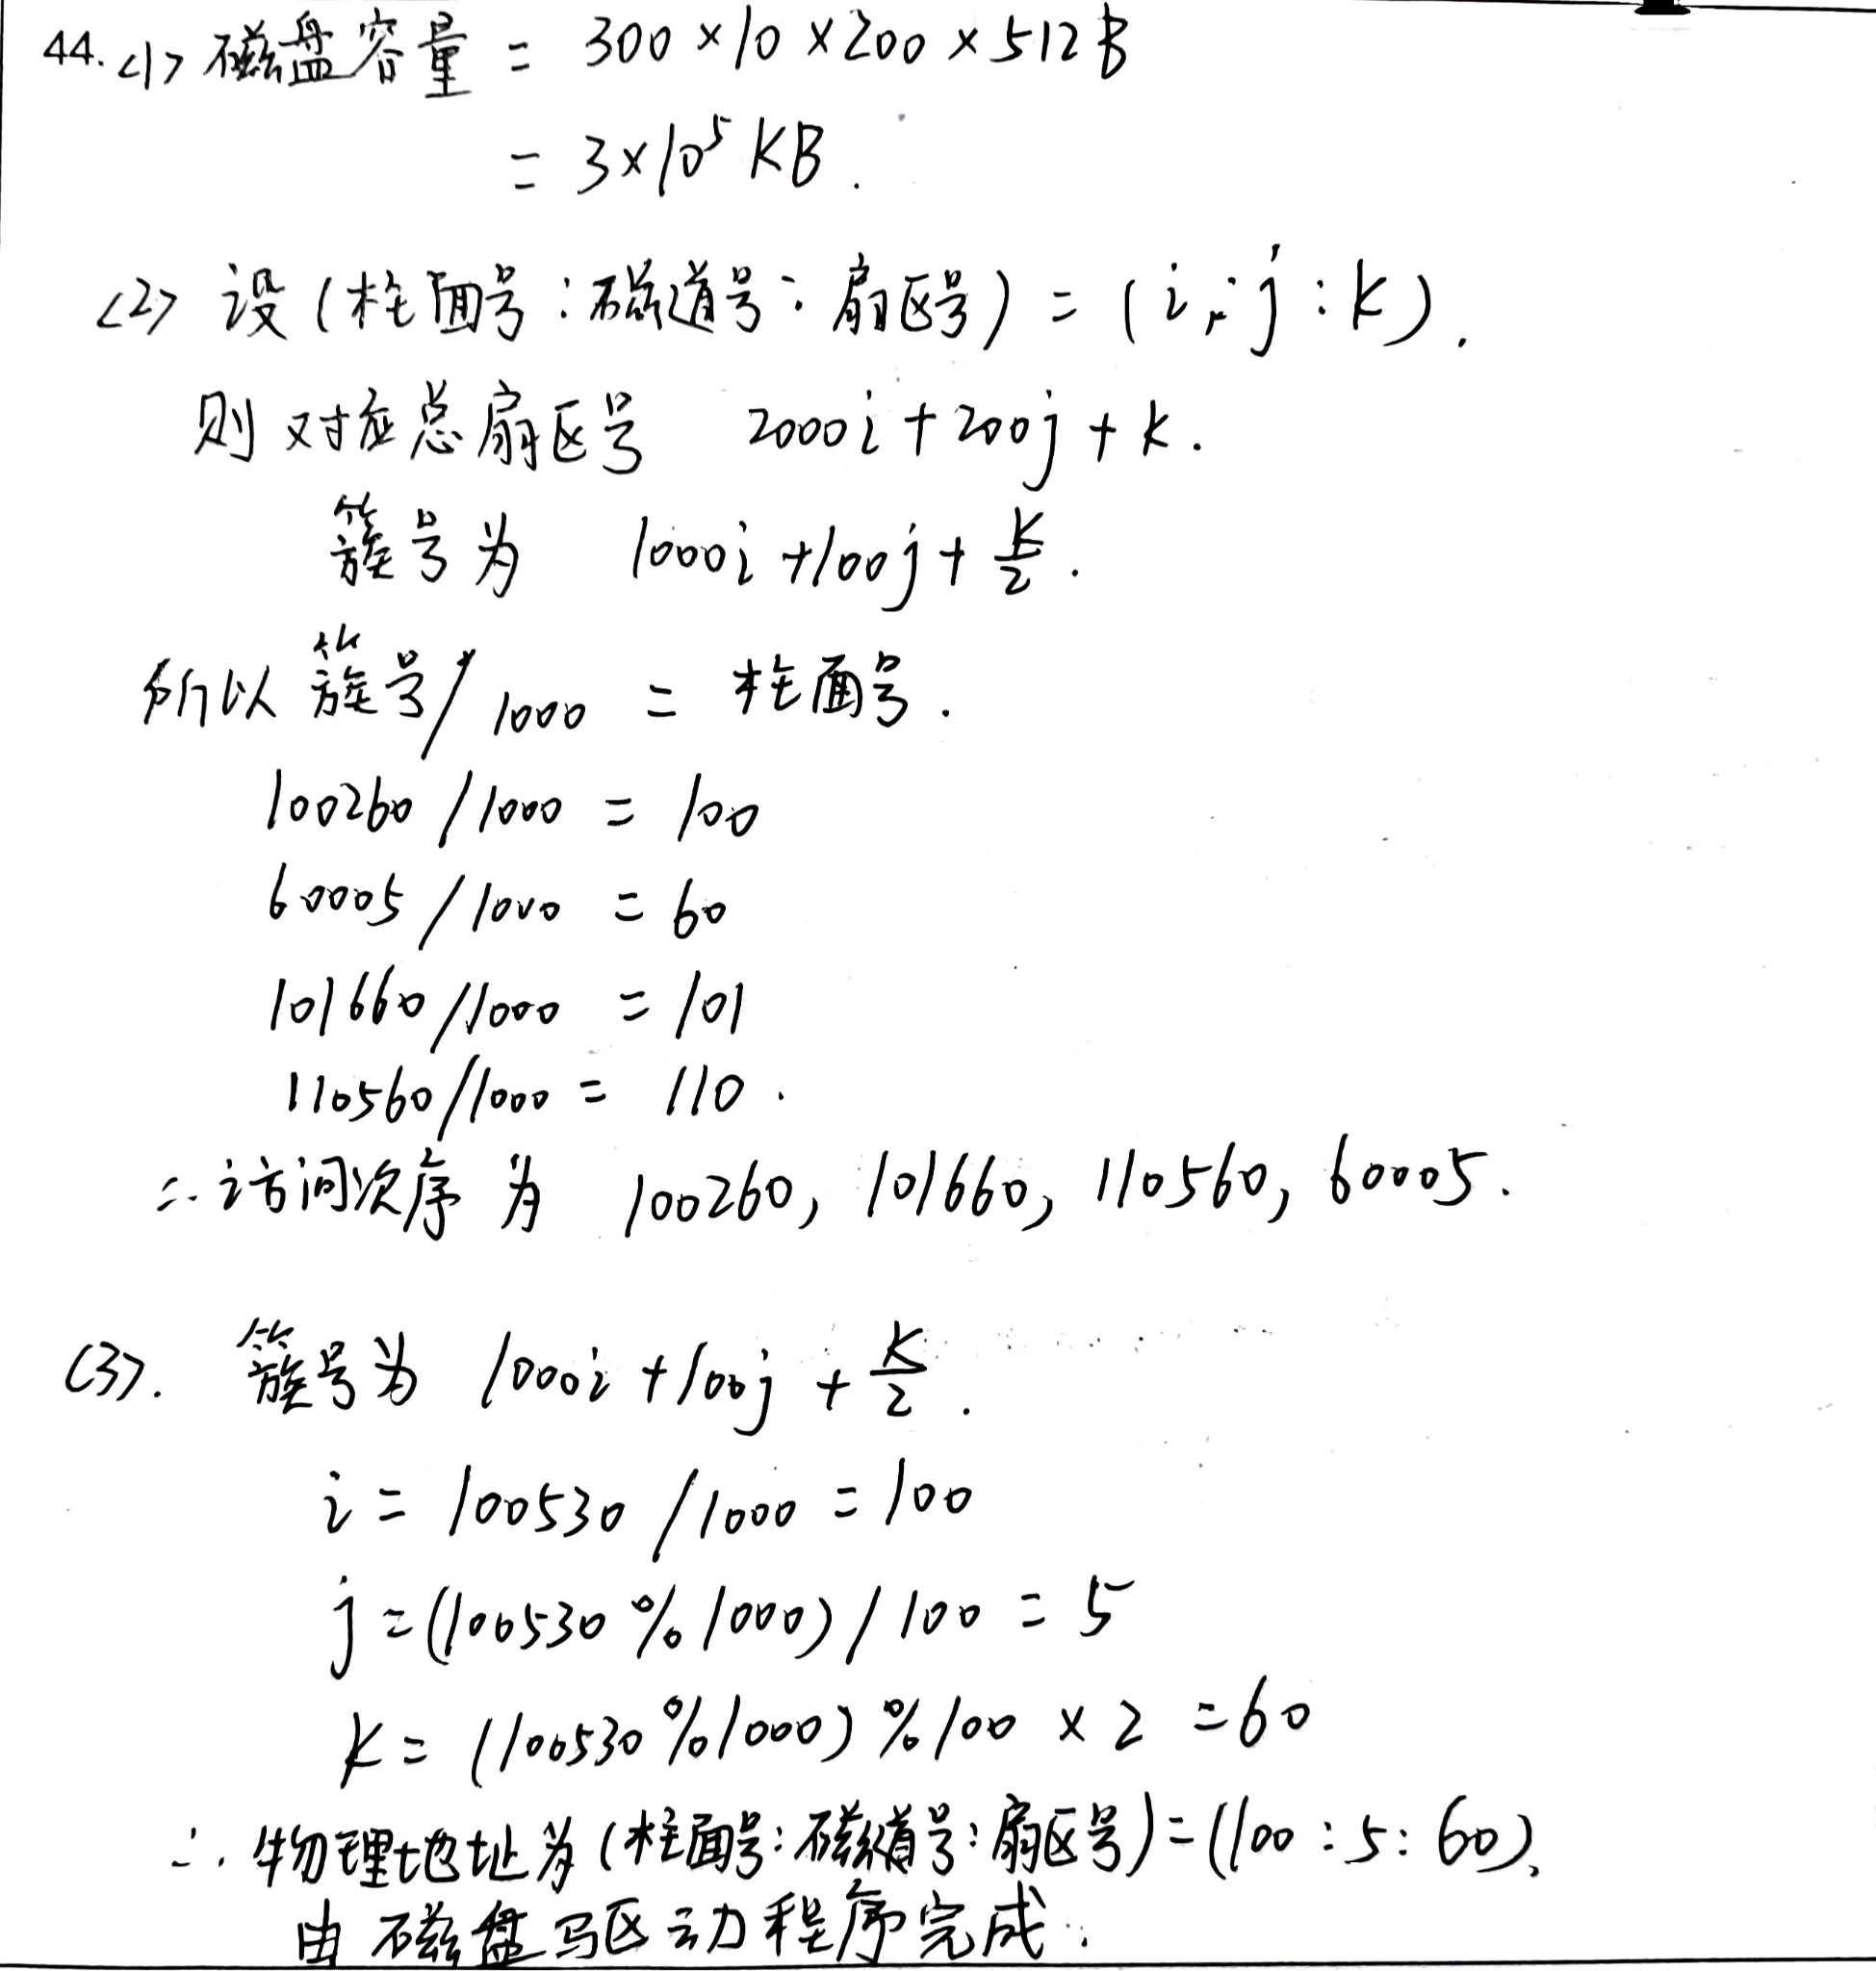 44. <1> 磁盘容量 = 300×10×200×512B
= 3×10⁵ KB.
<2> 设(柱面号:磁道号:扇区号) = (i:j:k).
则对应总扇区号 2000i+200j+k.
簇号为 1000i+100j+k/2.
所以 簇号/1000 = 柱面号.
100260/1000 = 100
60005/1000 = 60
101660/1000 = 101
110560/1000 = 110.
∴访问次序为 100260, 101660, 110560, 60005.
(3). 簇号为 1000i+100j+k/2.
i = 100530/1000 = 100
j = (100530%1000)/100 = 5
k = (100530%1000)%100×2 = 60
∴物理地址为(柱面号:磁道号:扇区号)=(100:5:60),
由磁盘驱动程序完成.